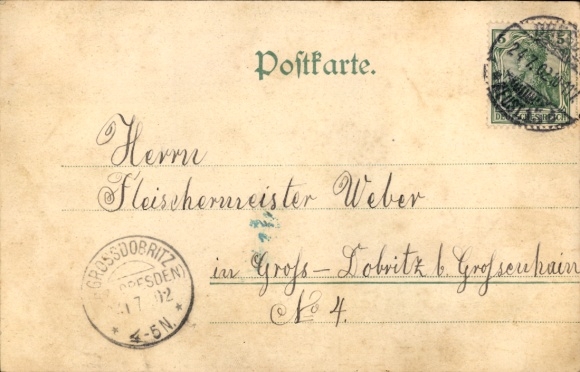 Postkarte.
DEUTSCHES REICH
Herrn
Fleischermeister Weber
in Gross-Dobritz b. Grossenhain
No 4.
GROSSDOBRITZ
(DRESDEN)
7 02
* 4-5N. *